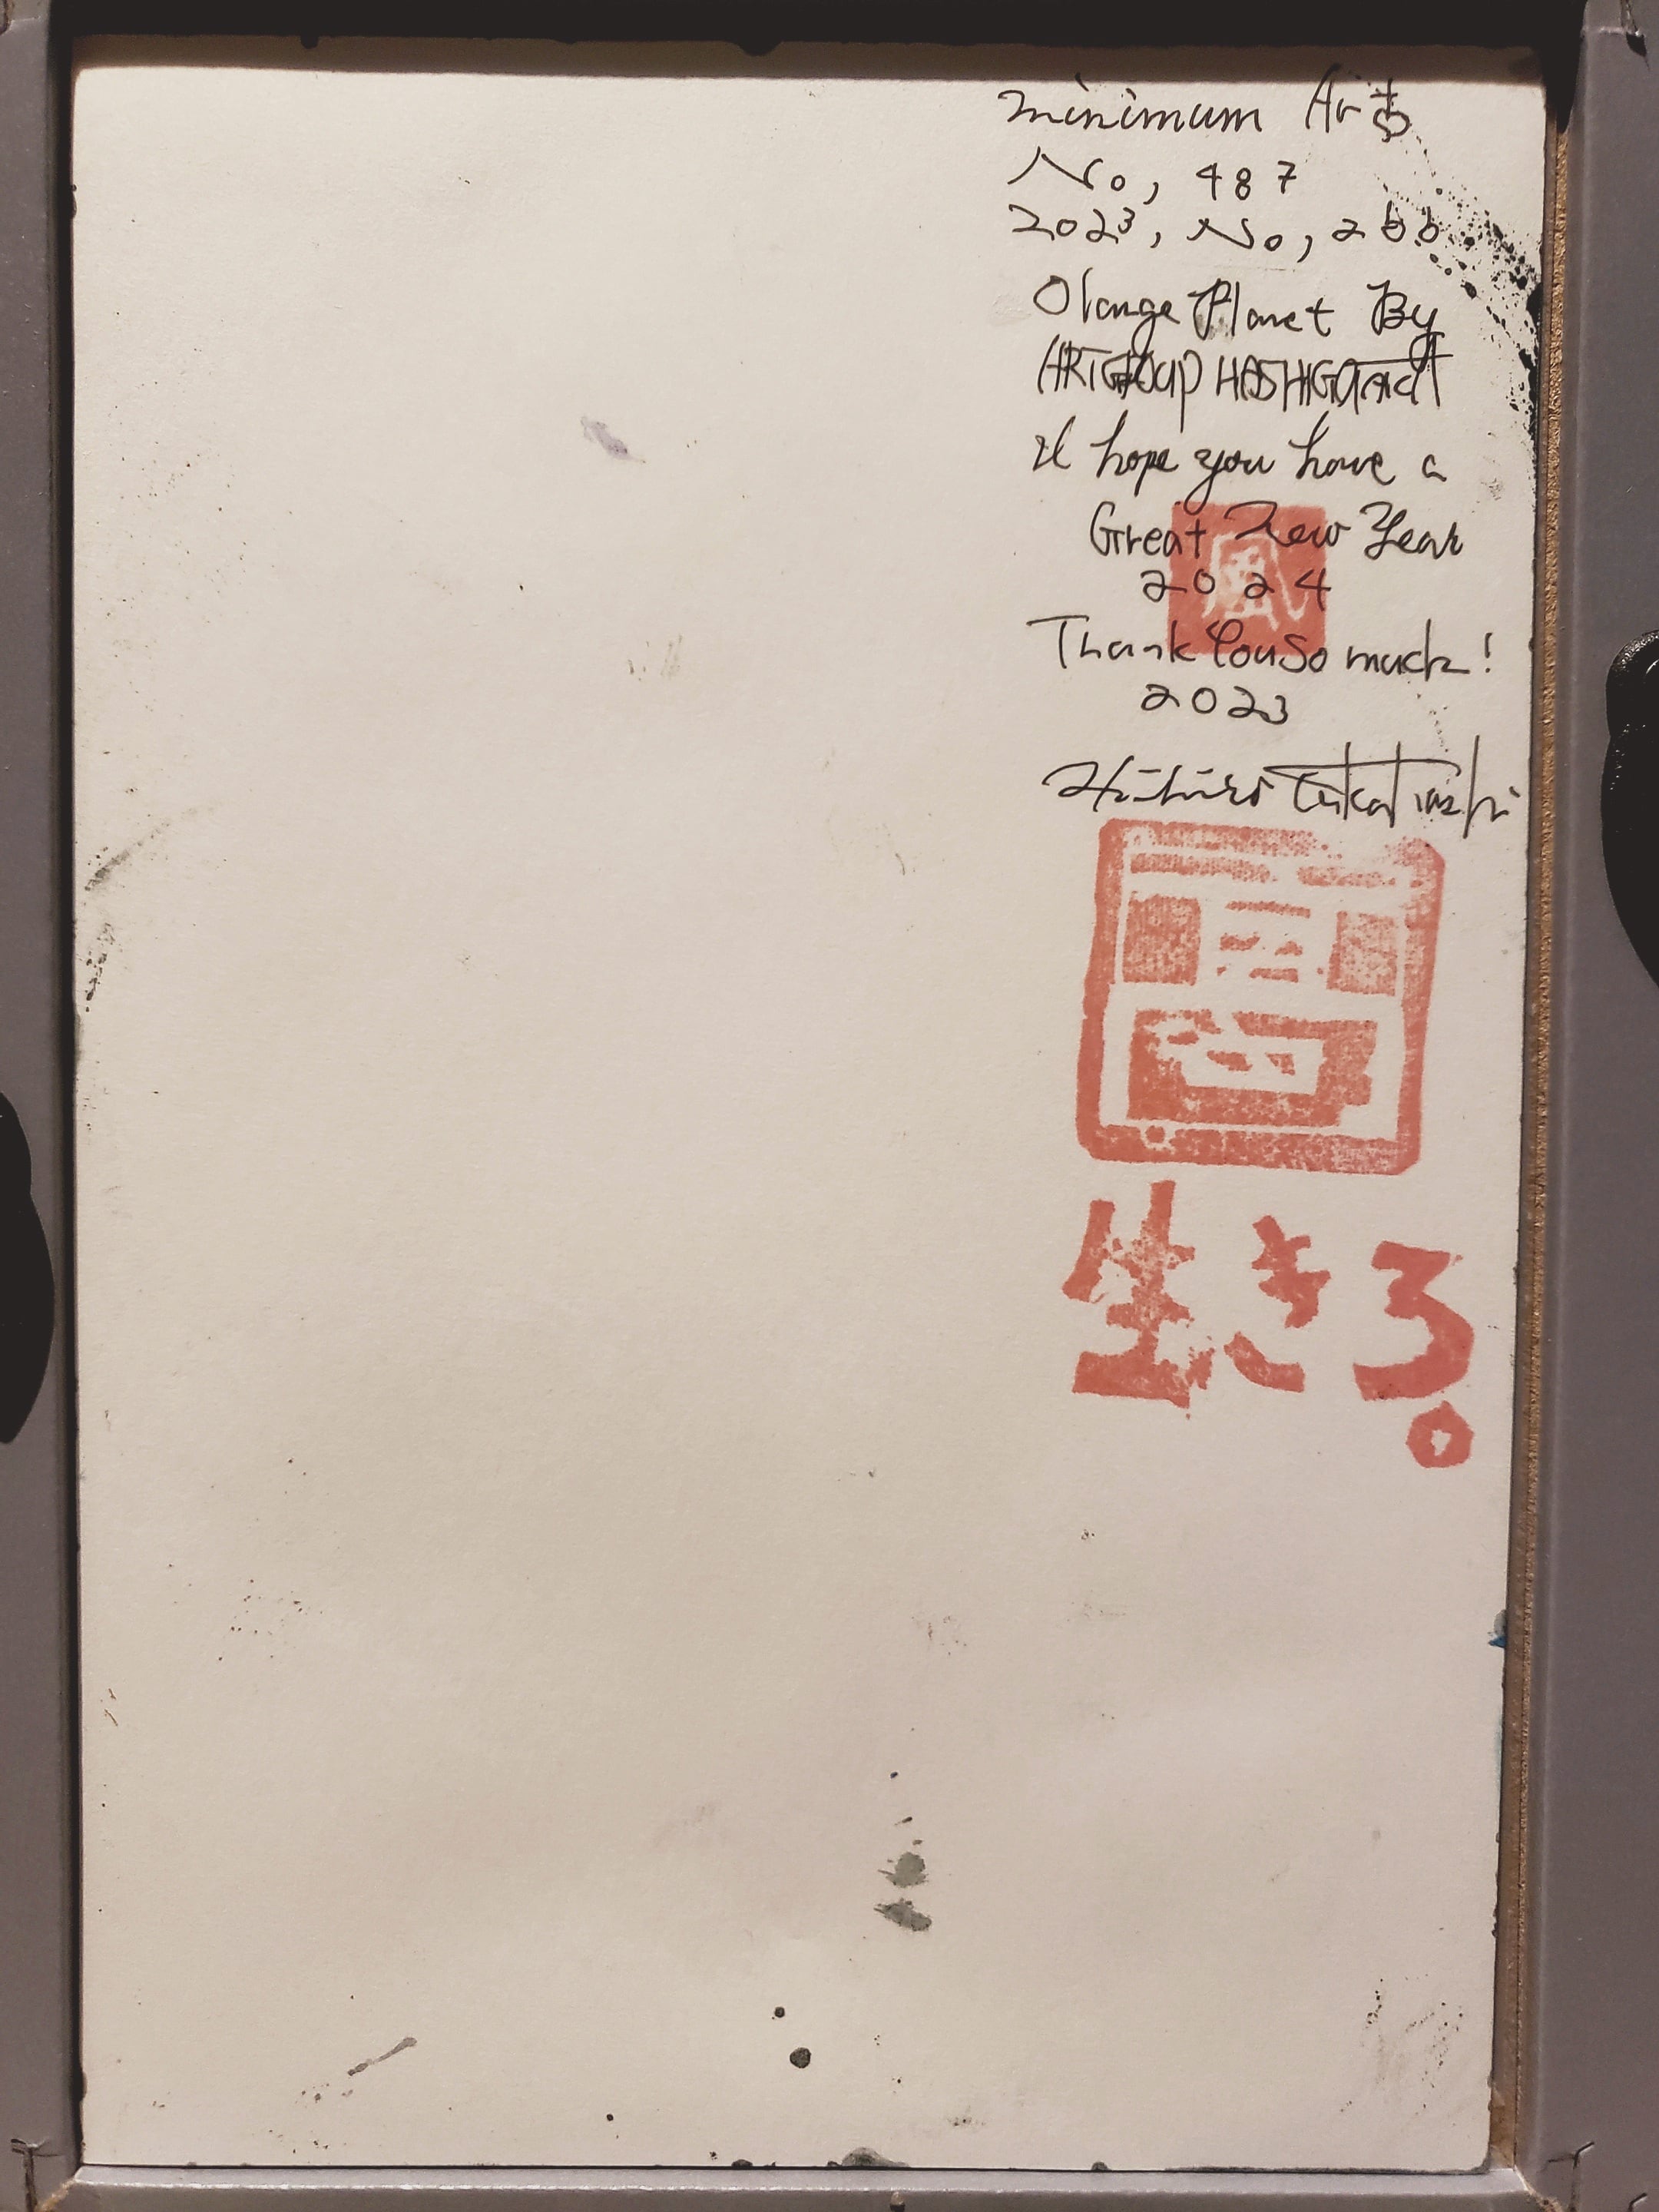 minimum Art
No, 487
2023, No, 266
Olange Planet By
ARTGROUP HASHIGOTAKA
I hope you have a
Great New Year
風
2024
Thank You So much!
2023
生きろ。